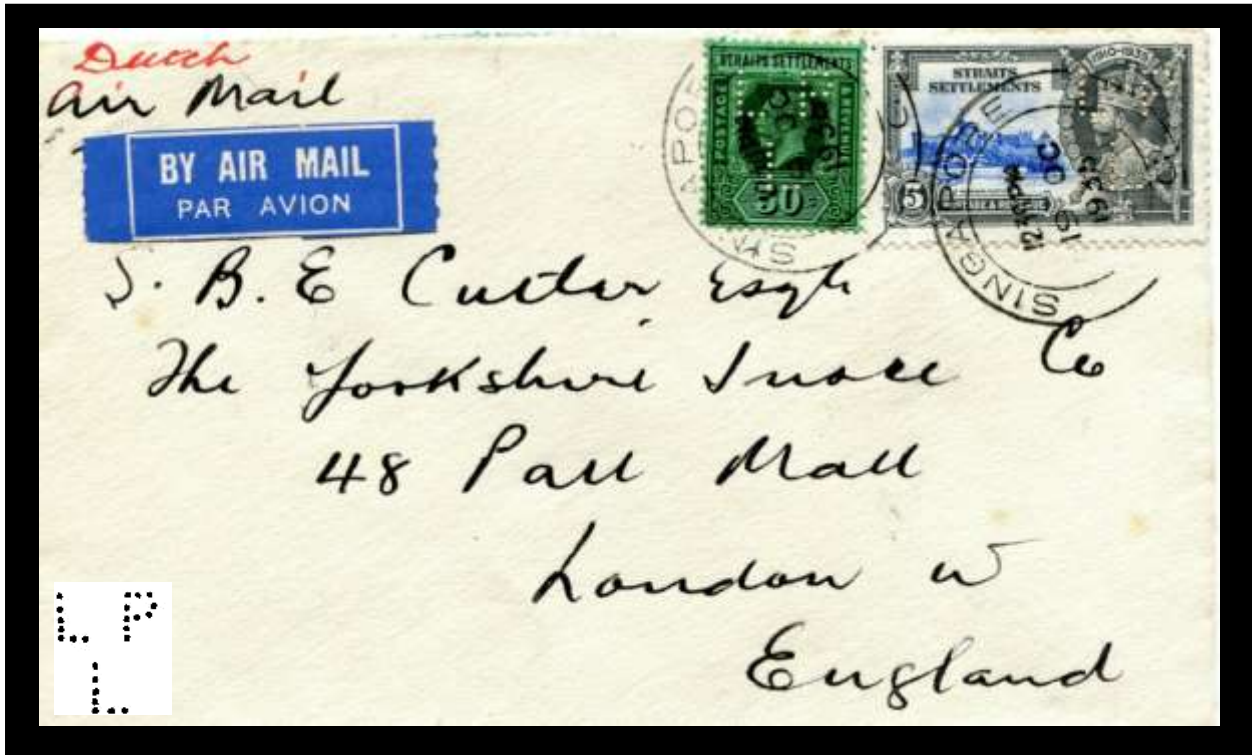 Dutch
Air Mail
BY AIR MAIL
PAR AVION
STRAITS SETTLEMENTS
POSTAGE
REVENUE
30
STRAITS
SETTLEMENTS
1910-1935
5
SINGAPORE
19 OC
1935
J. B. E Cutler Esqre
The Yorkshire Insce Co
48 Pall Mall
London W
England
L P
L